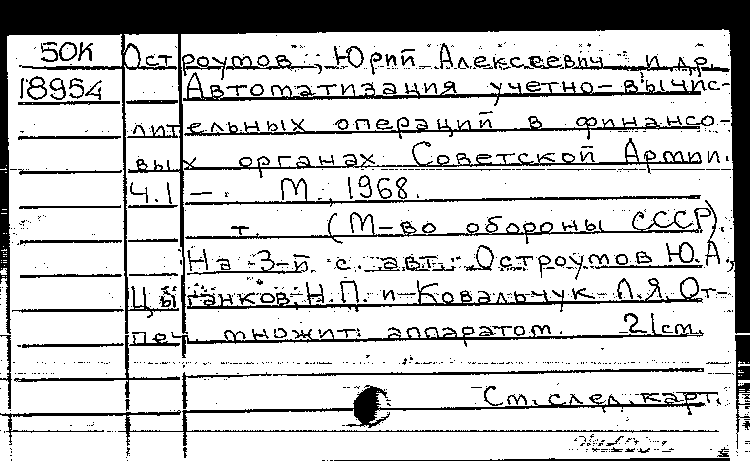 50К Остроумов, Юрий Алексеевич и др.
18954 Автоматизация учетно-вычис-
лительных операций в финансо-
вых органах Советской Армии.
Ч.1 -. М., 1968.
т. (М-во обороны СССР).
На 3-й с. авт.: Остроумов Ю.А.,
Цыганков, Н.П. и Ковальчук Л.Я. От-
печ. множит. аппаратом. 21см.
См. след. карт.